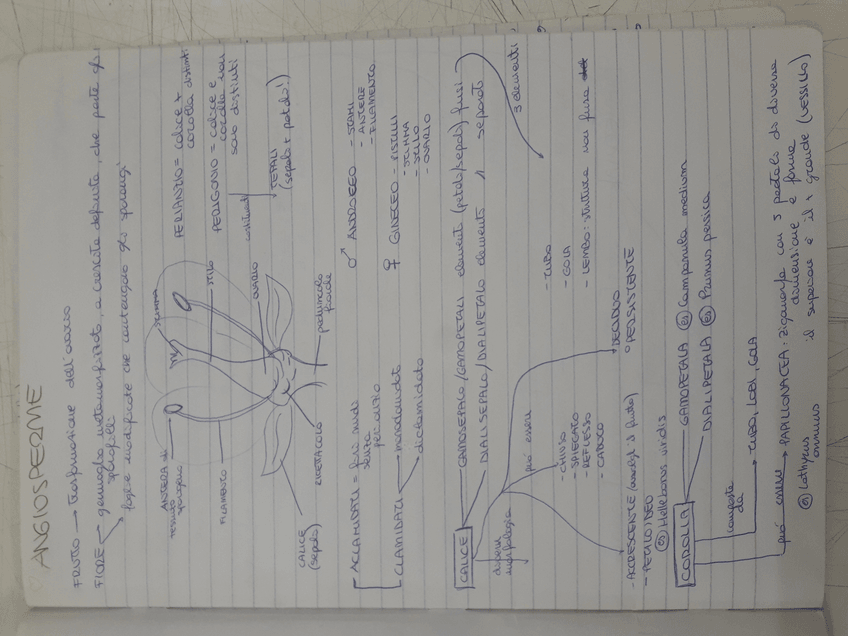 ANGIOSPERME
FRUTTO → trasformazione dell'ovario
FIORE → germoglio metamorfosato, a crescita definita, che porta gli
sporofilli
foglie modificate che contengono gli sporangi
ANTERA di
tessuto
sporigeno
STIGMA
STILO
FILAMENTO
OVARIO
CALICE
(sepalo)
RICETTACOLO
peduncolo
fiorale
PERIANZIO = calice +
corolla distinti
PERIGONIO = calice e
corolla non
sono distinti
costituiti
TEPALI
(sepalo + petalo!)
ACLAMIDATI = fiori nudi
senza
perianzio
CLAMIDATI → monoclamidati
→ diclamidati
♂ ANDROCEO - STAMI
- ANTERE
- FILAMENTO
♀ GINECEO - PISTILLI
- STIGMA
- STILO
- OVARIO
CALICE
GAMOSEPALO/GAMOPETALI elementi (petali/sepali) fusi
DIALISEPALO/DIALIPETALO elementi separati
3 elementi
diversa
morfologia
può essere
- CHIUSO
- SPIEGATO
- REFLESSO
- CADUCO
- TUBO
- GOLA
- LEMBO: struttura non fusa
DECIDUO
o PERSISTENTE
- ACCRESCENTE (avvolge il frutto)
- PETALOIDEO
es Helleborus viridis
COROLLA
GAMOPETALA es Campanula medium
DIALIPETALA es Prunus persica
composta
da
→ TUBO, LOBI, GOLA
può essere → PAPILIONACEA: zigomorfa con 5 petali di diversa
dimensione e forma
il superiore è il + grande (VESSILLO)
es Lathyrus
annuus